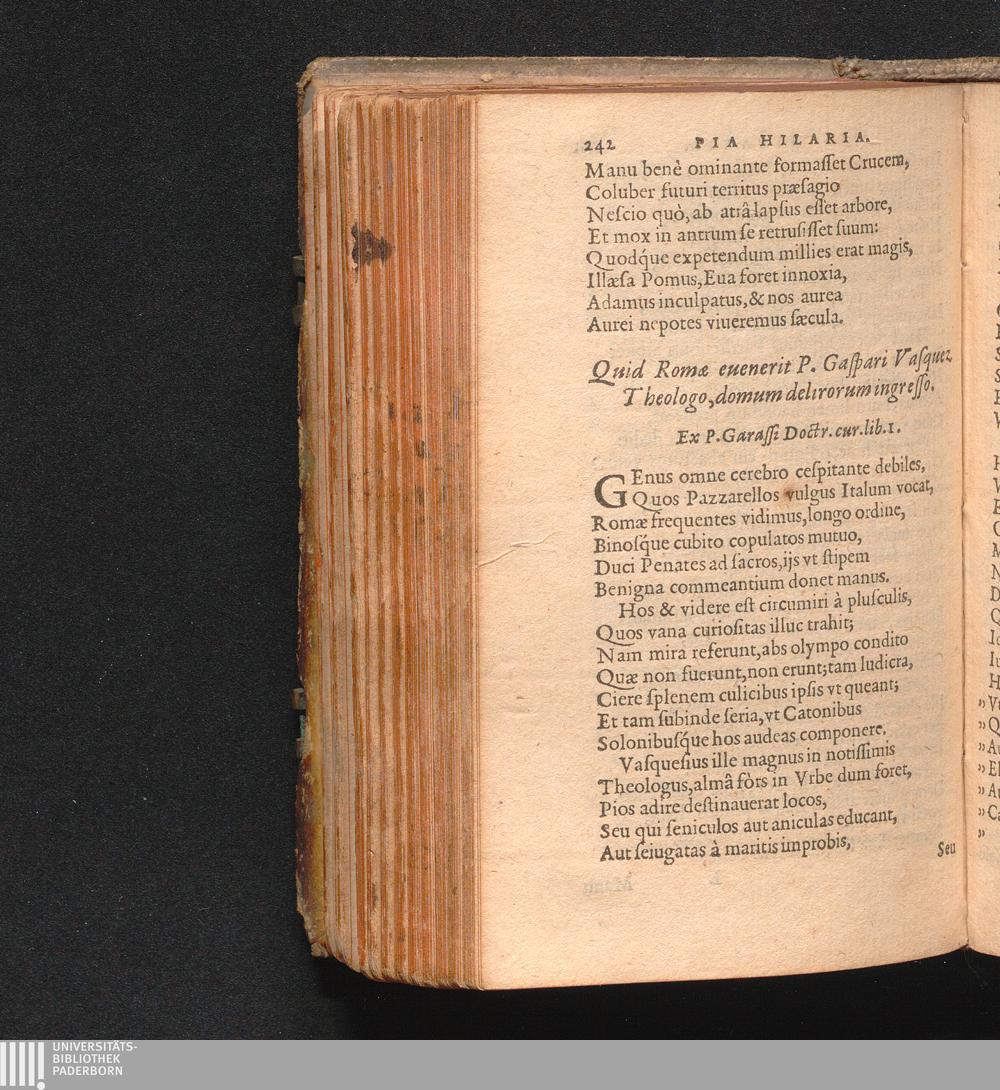 242 PIA HILARIA.
Manu benè ominante formaſſet Crucem,
Coluber futuri territus præſagio
Neſcio quò, ab atrâ lapſus eſſet arbore,
Et mox in antrum ſe retruſiſſet ſuum:
Quodq́ue expetendum millies erat magis,
Illæſa Pomus, Eua foret innoxia,
Adamus inculpatus, & nos aurea
Aurei nepotes viueremus ſæcula.
Quid Romæ euenerit P. Gaſpari Vaſquez
Theologo, domum delirorum ingreſſo.
Ex P. Garaſſi Doctr. cur. lib. 1.
GEnus omne cerebro ceſpitante debiles,
Quos Pazzarellos vulgus Italum vocat,
Romæ frequentes vidimus, longo ordine,
Binoſq́ue cubito copulatos mutuo,
Duci Penates ad ſacros, ijs vt ſtipem
Benigna commeantium donet manus.
Hos & videre eſt circumiri à pluſculis,
Quos vana curioſitas illuc trahit;
Nam mira referunt, abs olympo condito
Quæ non fuerunt, non erunt; tam ludicra,
Ciere ſplenem culicibus ipſis vt queant;
Et tam ſubinde ſeria, vt Catonibus
Solonibuſq́ue hos audeas componere.
Vaſqueſius ille magnus in notiſſimis
Theologus, almâ fòrs in Vrbe dum foret,
Pios adire deſtinauerat locos,
Seu qui ſeniculos aut aniculas educant,
Aut ſeiugatas à maritis improbis,
Seu
UNIVERSITÄTS-
BIBLIOTHEK
PADERBORN